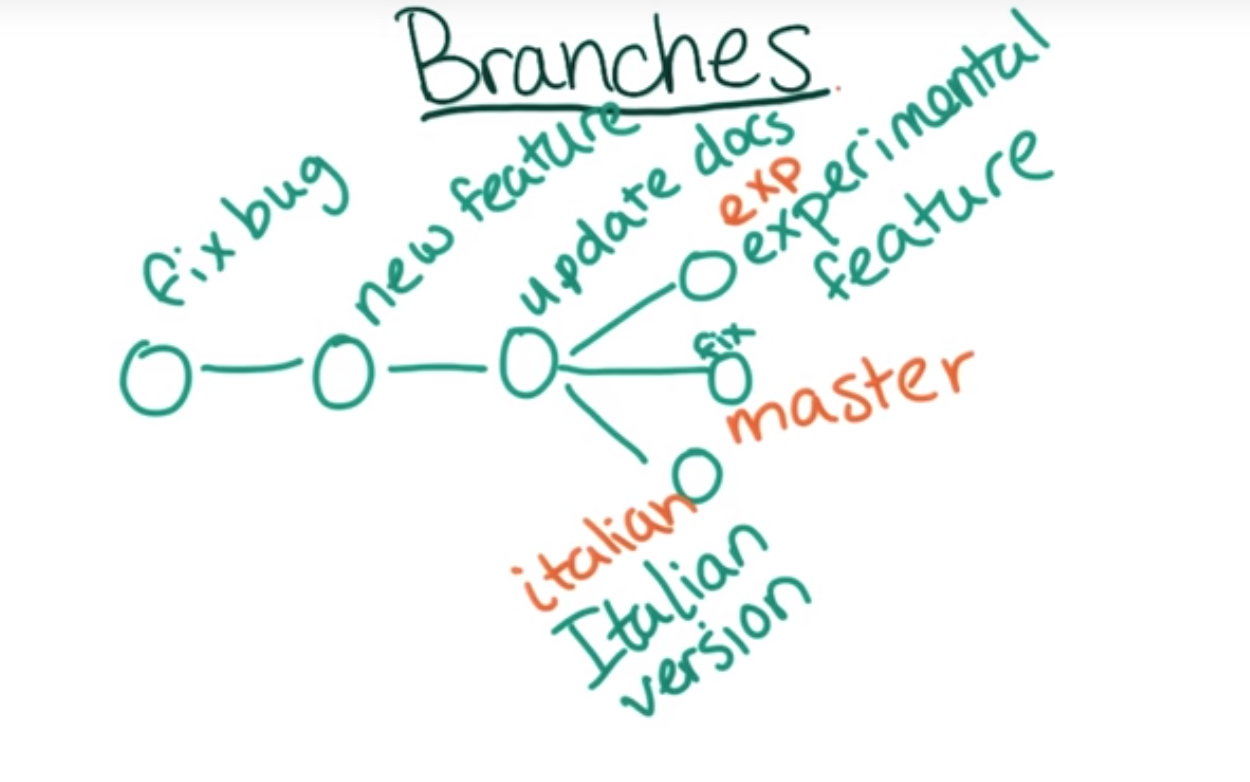 Branches
fix bug
new feature
update docs
exp
experimental
feature
fix
master
italian
Italian
version